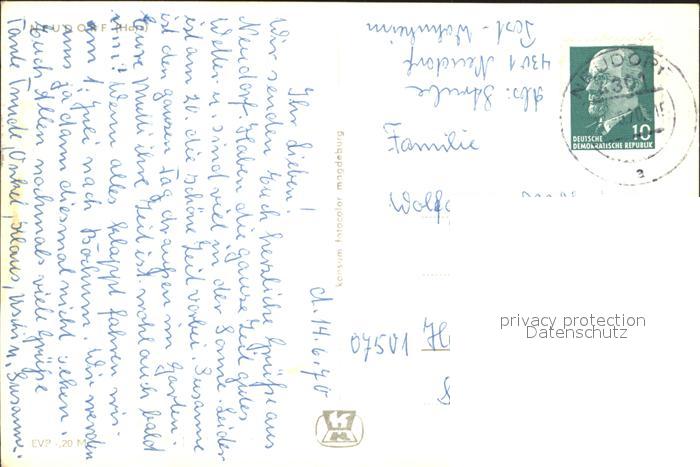 NEUDORF (Harz)
d. 14.6.70
Ihr Lieben!
Wir senden Euch herzliche Grüße aus
Neudorf. Haben die ganze Zeit gutes
Wetter u. sind viel in der Sonne. Leider
ist am 20. die schöne Zeit vorbei. Susanne
ist den ganzen Tag draußen im Garten.
Eure Mutti ihre Zeit ist wohl auch bald
um? Wenn alles klappt fahren wir
am 1. Juli nach Bochum. Wir werden
uns ja dann diesmal nicht sehen.
Euch Allen nochmals viele Grüße
Tante Trude, Onkel Klaus, Uschi u. Susanne.
EVP -,20 M
konsum fotocolor magdeburg
Abs. Strube
4301 Neudorf
Post-Wohnheim
Familie
Wolf
10570
NEUDORF
4301
a
10
DEUTSCHE
DEMOKRATISCHE REPUBLIK
privacy protection
Datenschutz